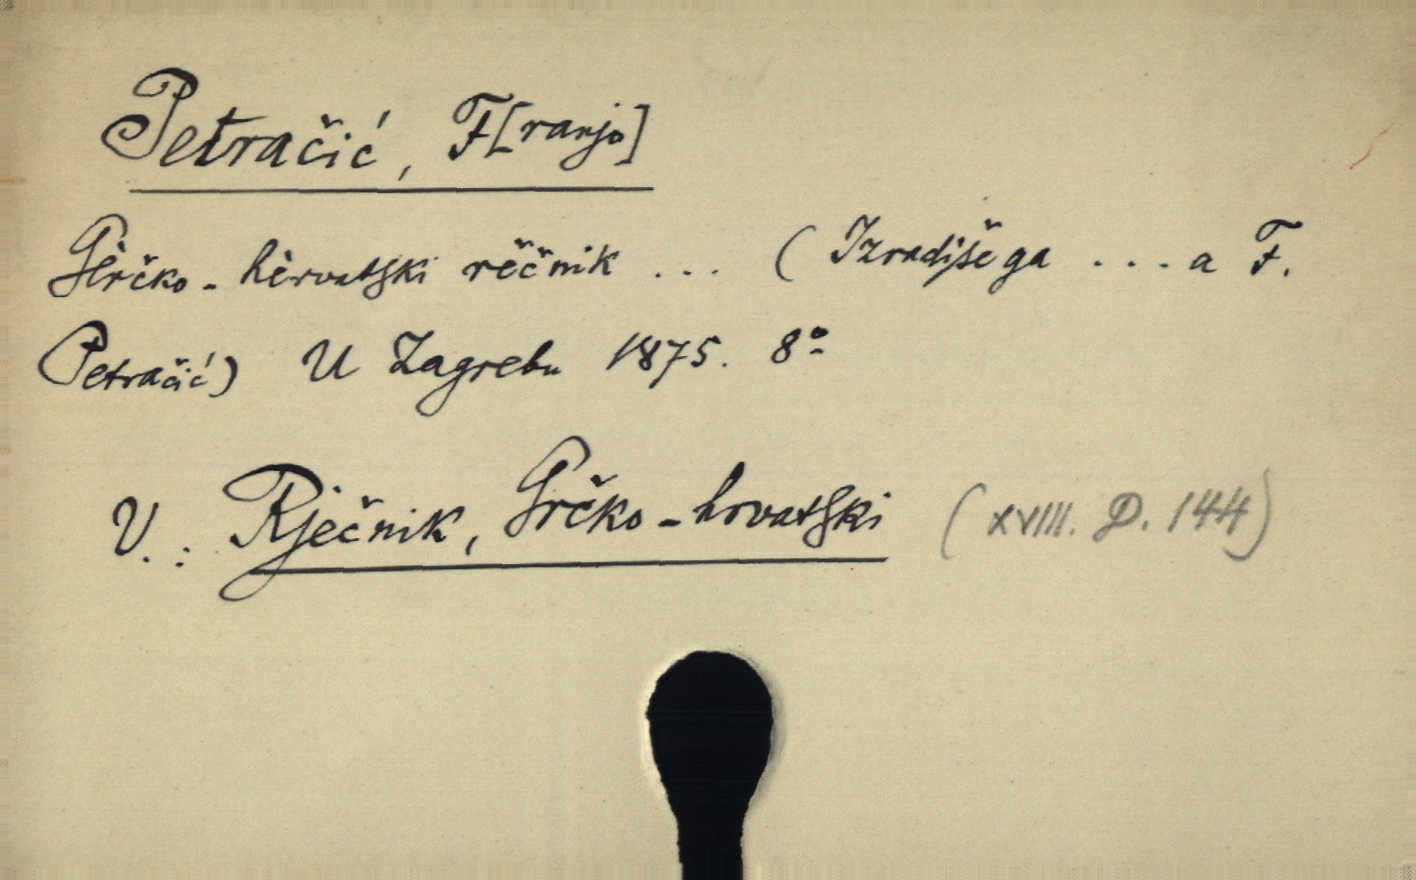 Petračić, F[ranjo]
Gèrčko-hèrvatski rěčnik ... (Izradiše ga ... a F.
Petračić) U Zagrebu 1875. 8º
V.: Rječnik, Grčko-hrvatski (XVIII. D. 144)